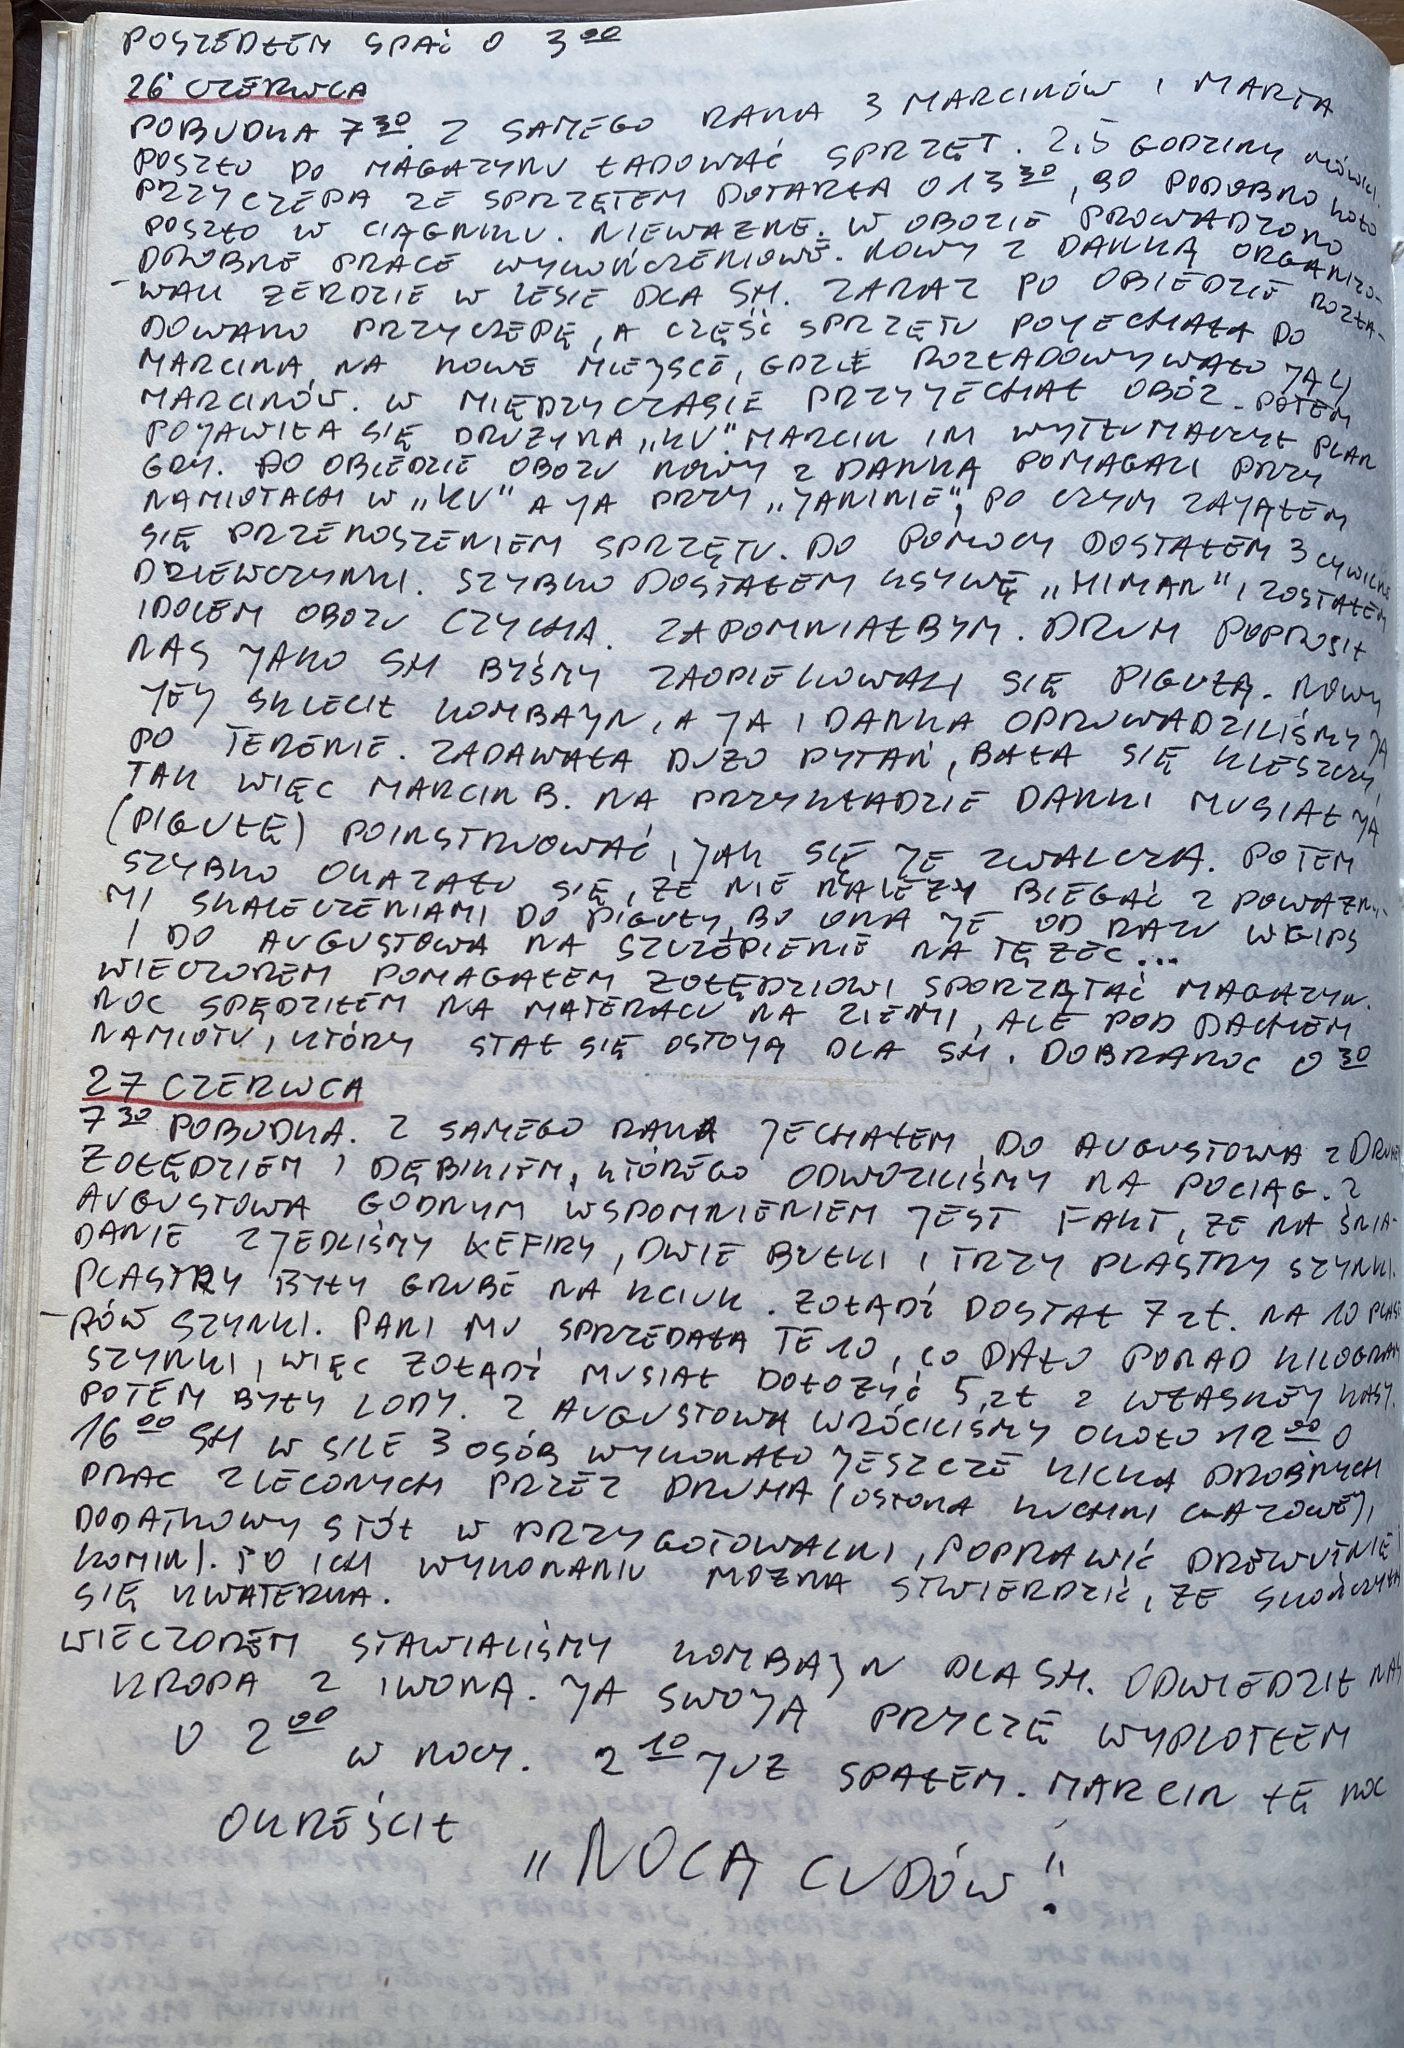 POSZEDŁEM SPAĆ O 3 00
26 CZERWCA
POBUDKA 7 30. Z SAMEGO RANA 3 MARCINÓW I MARTA
POSZŁO DO MAGAZYNU ŁADOWAĆ SPRZĘT. 2,5 GODZINY
PRZYCZEPA ZE SPRZĘTEM DOTARŁA O 13 30, BO PODOBNO KOŁO
POSZŁO W CIĄGNIKU. NIEWAŻNE. W OBOZIE PROWADZONO
DROBNE PRACE WYKOŃCZENIOWE. NOWY Z DANKĄ ORGANIZO-
WALI ŻERDZIE W LESIE DLA SH. ZARAZ PO OBIEDZIE ROZŁA-
DOWANO PRZYCZEPĘ, A CZĘŚĆ SPRZĘTU POJECHAŁA DO
MARCINA, NA NOWE MIEJSCE, GDZIE ROZŁADOWYWAŁO JĄ
MARCINÓW. W MIĘDZYCZASIE PRZYJECHAŁ OBÓZ. POTEM
POJAWIŁA SIĘ DRUŻYNA „KU". MARCIN IM WYTŁUMACZYŁ PLAN
GRY. PO OBIEDZIE OBOZU NOWY Z DANKĄ POMAGALI PRZY
NAMIOTACH W „KU" A JA PRZY „JANINIE", PO CZYM ZAJĄŁEM
SIĘ PRZENOSZENIEM SPRZĘTU. DO POMOCY DOSTAŁEM 3 CYWILNE
DZIEWCZYNKI. SZYBKO DOSTAŁEM KSYWĘ „HIMAN" I ZOSTAŁEM
IDOLEM OBOZU CZYCHA. ZAPOMNIAŁBYM. DRUH POPROSIŁ
NAS JAKO SH BYŚMY ZAOPIEKOWALI SIĘ PIGUŁĄ. NOWY
JEJ SKLECIŁ KOMBAJN, A JA I DANKA OPROWADZILIŚMY JĄ
PO TERENIE. ZADAWAŁA DUŻO PYTAŃ, BAŁA SIĘ KLESZCZY,
TAK WIĘC MARCIN B. NA PRZYKŁADZIE DANKI MUSIAŁ JĄ
(PIGUŁĘ) POINSTRUOWAĆ, JAK SIĘ JE ZWALCZA. POTEM
SZYBKO OKAZAŁO SIĘ, ŻE NIE NALEŻY BIEGAĆ Z POWAŻNY-
MI SKALECZENIAMI DO PIGUŁY, BO ONA JE OD RAZU W GIPS
I DO AUGUSTOWA NA SZCZEPIENIE NA TĘŻEC...
WIECZOREM POMAGAŁEM ŻOŁĘDZIOWI SPORZĄTAĆ MAGAZYN.
NOC SPĘDZIŁEM NA MATERACU NA ZIEMI, ALE POD DACHEM
NAMIOTU, KTÓRY STAŁ SIĘ OSTOJĄ DLA SH. DOBRANOC 0 30
27 CZERWCA
7 30 POBUDKA. Z SAMEGO RANA JECHAŁEM DO AUGUSTOWA Z DRUHEM
ŻOŁĘDZIEM I DĘBIKIEM, KTÓREGO ODWOZILIŚMY NA POCIĄG. Z
AUGUSTOWA GODNYM WSPOMNIENIEM JEST FAKT, ŻE NA ŚNIA-
DANIE ZJEDLIŚMY KEFIRY, DWIE BUŁKI I TRZY PLASTRY SZYNKI.
PLASTRY BYŁY GRUBE NA KCIUK. ŻOŁĄDŹ DOSTAŁ 7 zł. NA 10 PLAST-
RÓW SZYNKI. PANI MU SPRZEDAŁA TE 10, CO DAŁO PONAD KILOGRAM
SZYNKI, WIĘC ŻOŁĄDŹ MUSIAŁ DOŁOŻYĆ 5 zł Z WŁASNEJ KASY.
POTEM BYŁY LODY. Z AUGUSTOWA WRÓCILIŚMY OKOŁO 12 00 O
16 00 SH W SILE 3 OSÓB WYKONAŁO JESZCZE KILKA DROBNYCH
PRAC ZLECONYCH PRZEZ DRUHA (OSŁONA KUCHNI GAZOWEJ,
DODATKOWY STÓŁ W PRZYGOTOWALNI, POPRAWIĆ DREWUTNIĘ I
KOMIN). PO ICH WYKONANIU MOŻNA STWIERDZIĆ, ŻE SKOŃCZYŁA
SIĘ KWATERKA.
WIECZOREM STAWIALIŚMY KOMBAJN DLA SH. ODWIEDZIŁ NAS
KROPA Z IWONĄ. JA SWOJĄ PRYCZĘ WYPLOTŁEM
O 2 00 W NOCY. 2 10 JUŻ SPAŁEM. MARCIN TĘ NOC
OKREŚLIŁ „NOCĄ CUDÓW"!